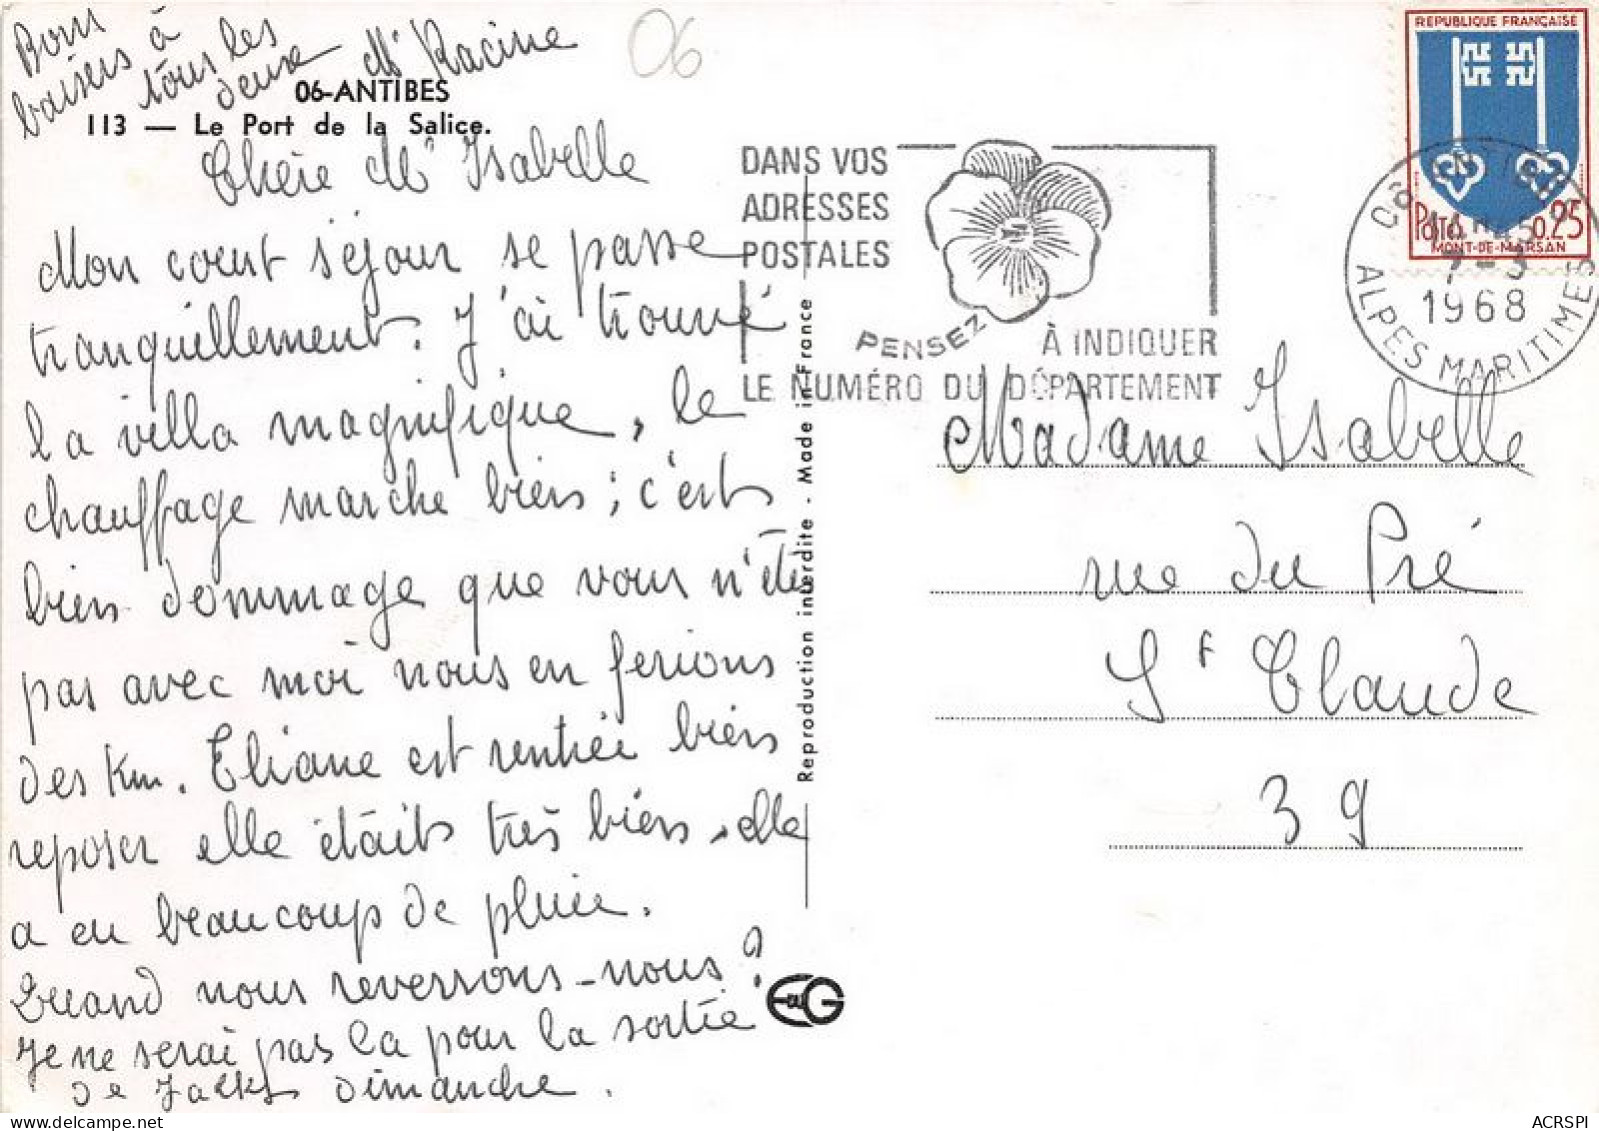 Bons
baisers à
tous les
deux Mr Racine
06
06-ANTIBES
113 — Le Port de la Salice.
Chère Me Isabelle
Mon court séjour se passe
tranquillement. J'ai trouvé
la villa magnifique, le
chauffage marche bien ; c'est
bien dommage que vous n'étiez
pas avec moi nous en ferions
des Km. Eliane est rentrée bien
reposer elle était très bien, elle
a eu beaucoup de pluie.
Quand nous reverrons-nous ?
Je ne serai pas la pour la sortie
de Jacky dimanche.
DANS VOS
ADRESSES
POSTALES
PENSEZ
À INDIQUER
LE NUMÉRO DU DÉPARTEMENT
REPUBLIQUE FRANÇAISE
0,25
MONT-DE-MARSAN
7-3
1968
ALPES MARITIMES
Reproduction interdite . Made in France
Madame Isabelle
rue du Pré
St Claude
39
EDUG
ACRSPI